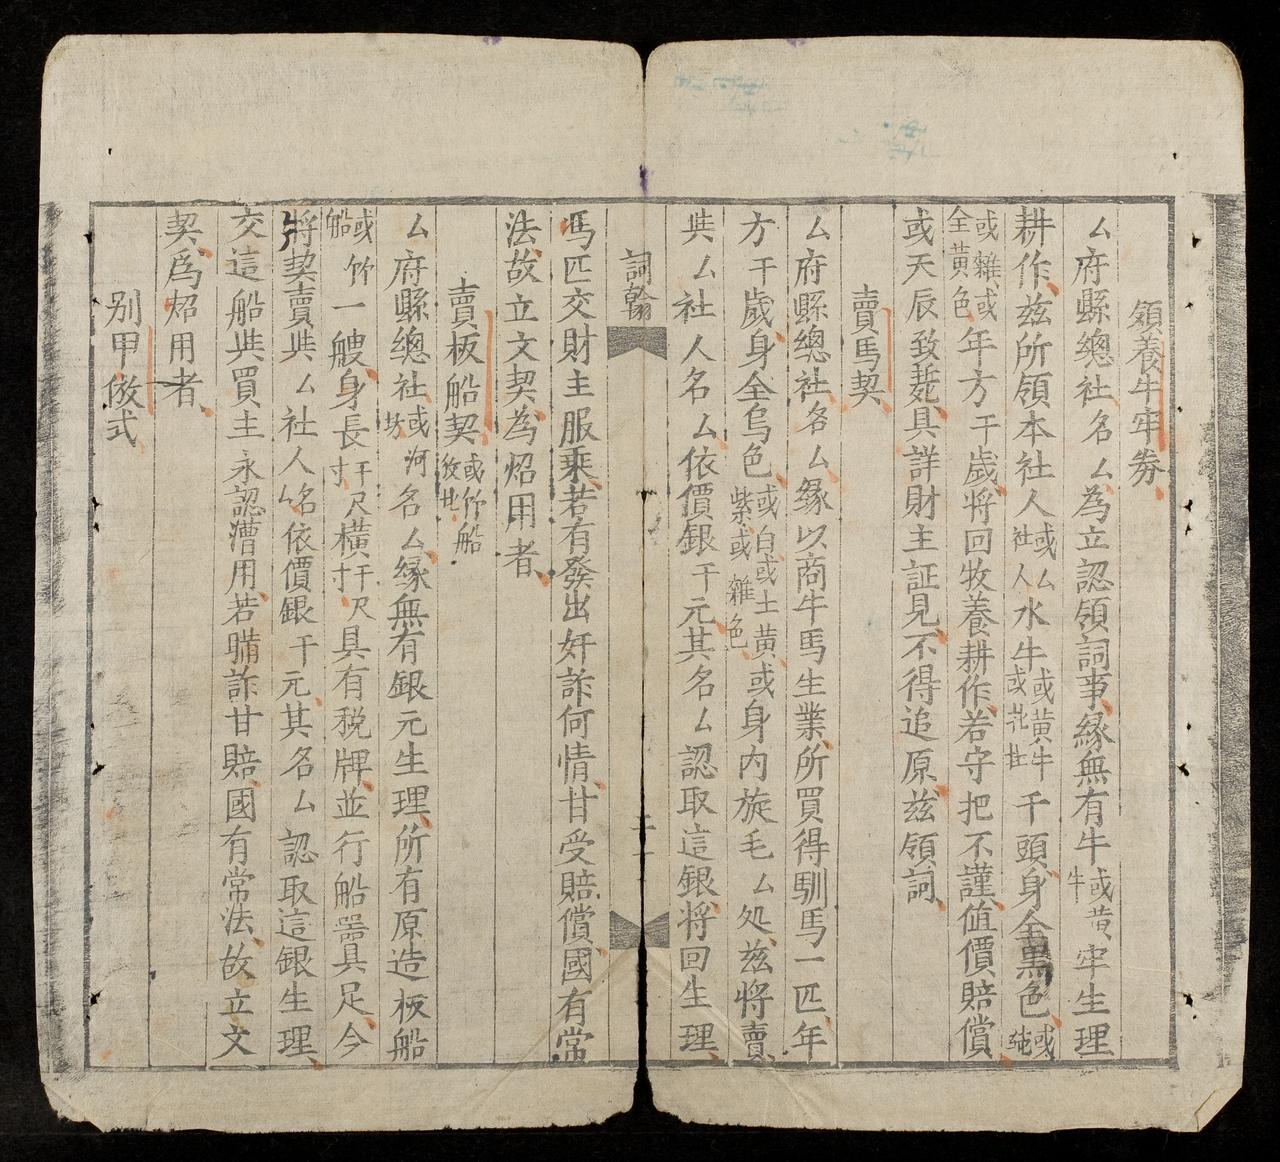 領養牛牢券
厶府縣總社名厶為立認領詞事緣無有牛或黄牛牢生理
耕作茲所領本社人或厶社人水牛或黄牛或牝牡干頭身全黑色或純
或雜或全黄色年方干歲将回牧養耕作若守把不謹值價賠償
或天辰致薨具詳財主証見不得追原茲領詞
賣馬契
厶府縣總社名厶緣以商牛馬生業所買得馴馬一匹年
方干歲身全烏色或白或土黄或紫或雜色或身内旋毛厶処茲將賣
與厶社人名厶依價銀干元其名厶認取這銀将回生理
詞翰
馮匹交財主服乘若有發出奸詐何情甘受賠償國有常
法故立文契為炤用者
賣板船契或竹船放此
厶府縣總社或河块名厶緣無有銀元生理所有原造板船
或竹船一艘身長干尺寸横干尺寸具有税牌並行船噐具足今
將契賣與厶社人名厶依價銀干元其名厶認取這銀生理
交這船與買主永認漕用若購詐甘賠國有常法故立文
契為炤用者
别甲倣式